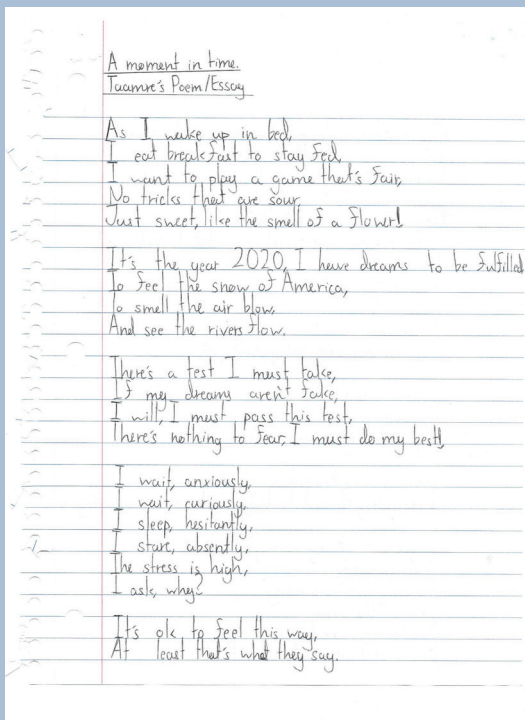 A moment in time.
Taamre's Poem/Essay
As I wake up in bed,
I eat breakfast to stay fed,
I want to play a game that's fair,
No tricks that are sour,
Just sweet, like the smell of a flower!
It's the year 2020, I have dreams to be fulfilled
To feel the snow of America,
To smell the air blow,
And see the rivers flow.
There's a test I must take,
If my dreams aren't fake,
I will, I must pass this test,
There's nothing to fear, I must do my best!
I wait, anxiously,
I wait, curiously,
I sleep, hesitantly,
I stare, absently,
The stress is high,
I ask, why?
It's ok to feel this way,
At least that's what they say.